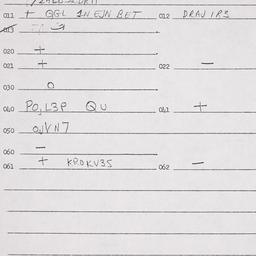 011 + QGL 1N EJN BET 012 DRAJ IRS
013
020 +
021 + 022 —
030 O
040 POJL3P QU 041 +
050 OJVN7
060 —
061 + KROKV3S 062 —